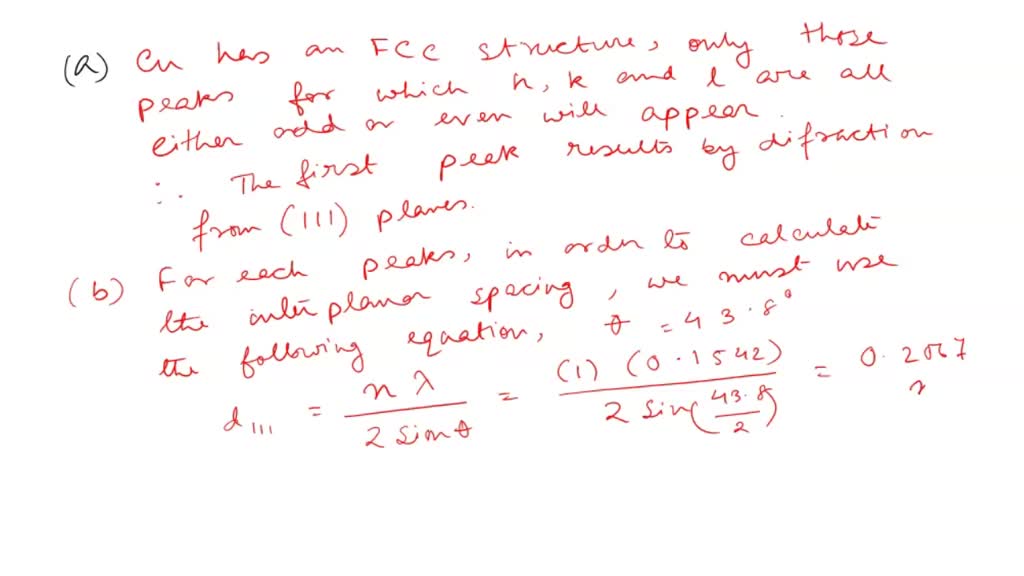 (a) Cu has an FCC structure, only those
peaks for which h, k and l are all
either odd or even will appear.
∴ The first peak results by difraction
from (111) planes.
(b) For each peaks, in order to calculate
the inter planar spacing, we must use
the following equation, θ = 43.8°
d₁₁₁ = nλ / 2 sin θ = (1) (0.1542) / 2 sin(43.8/2) = 0.2067
n